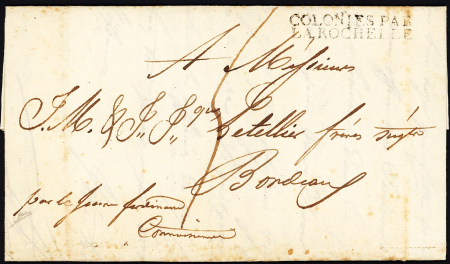 COLONIES PAR
LA ROCHELLE
A Messieurs
J. M. & J. Jques Letellier frères négts
Bordeaux
par le jeune ferdinand